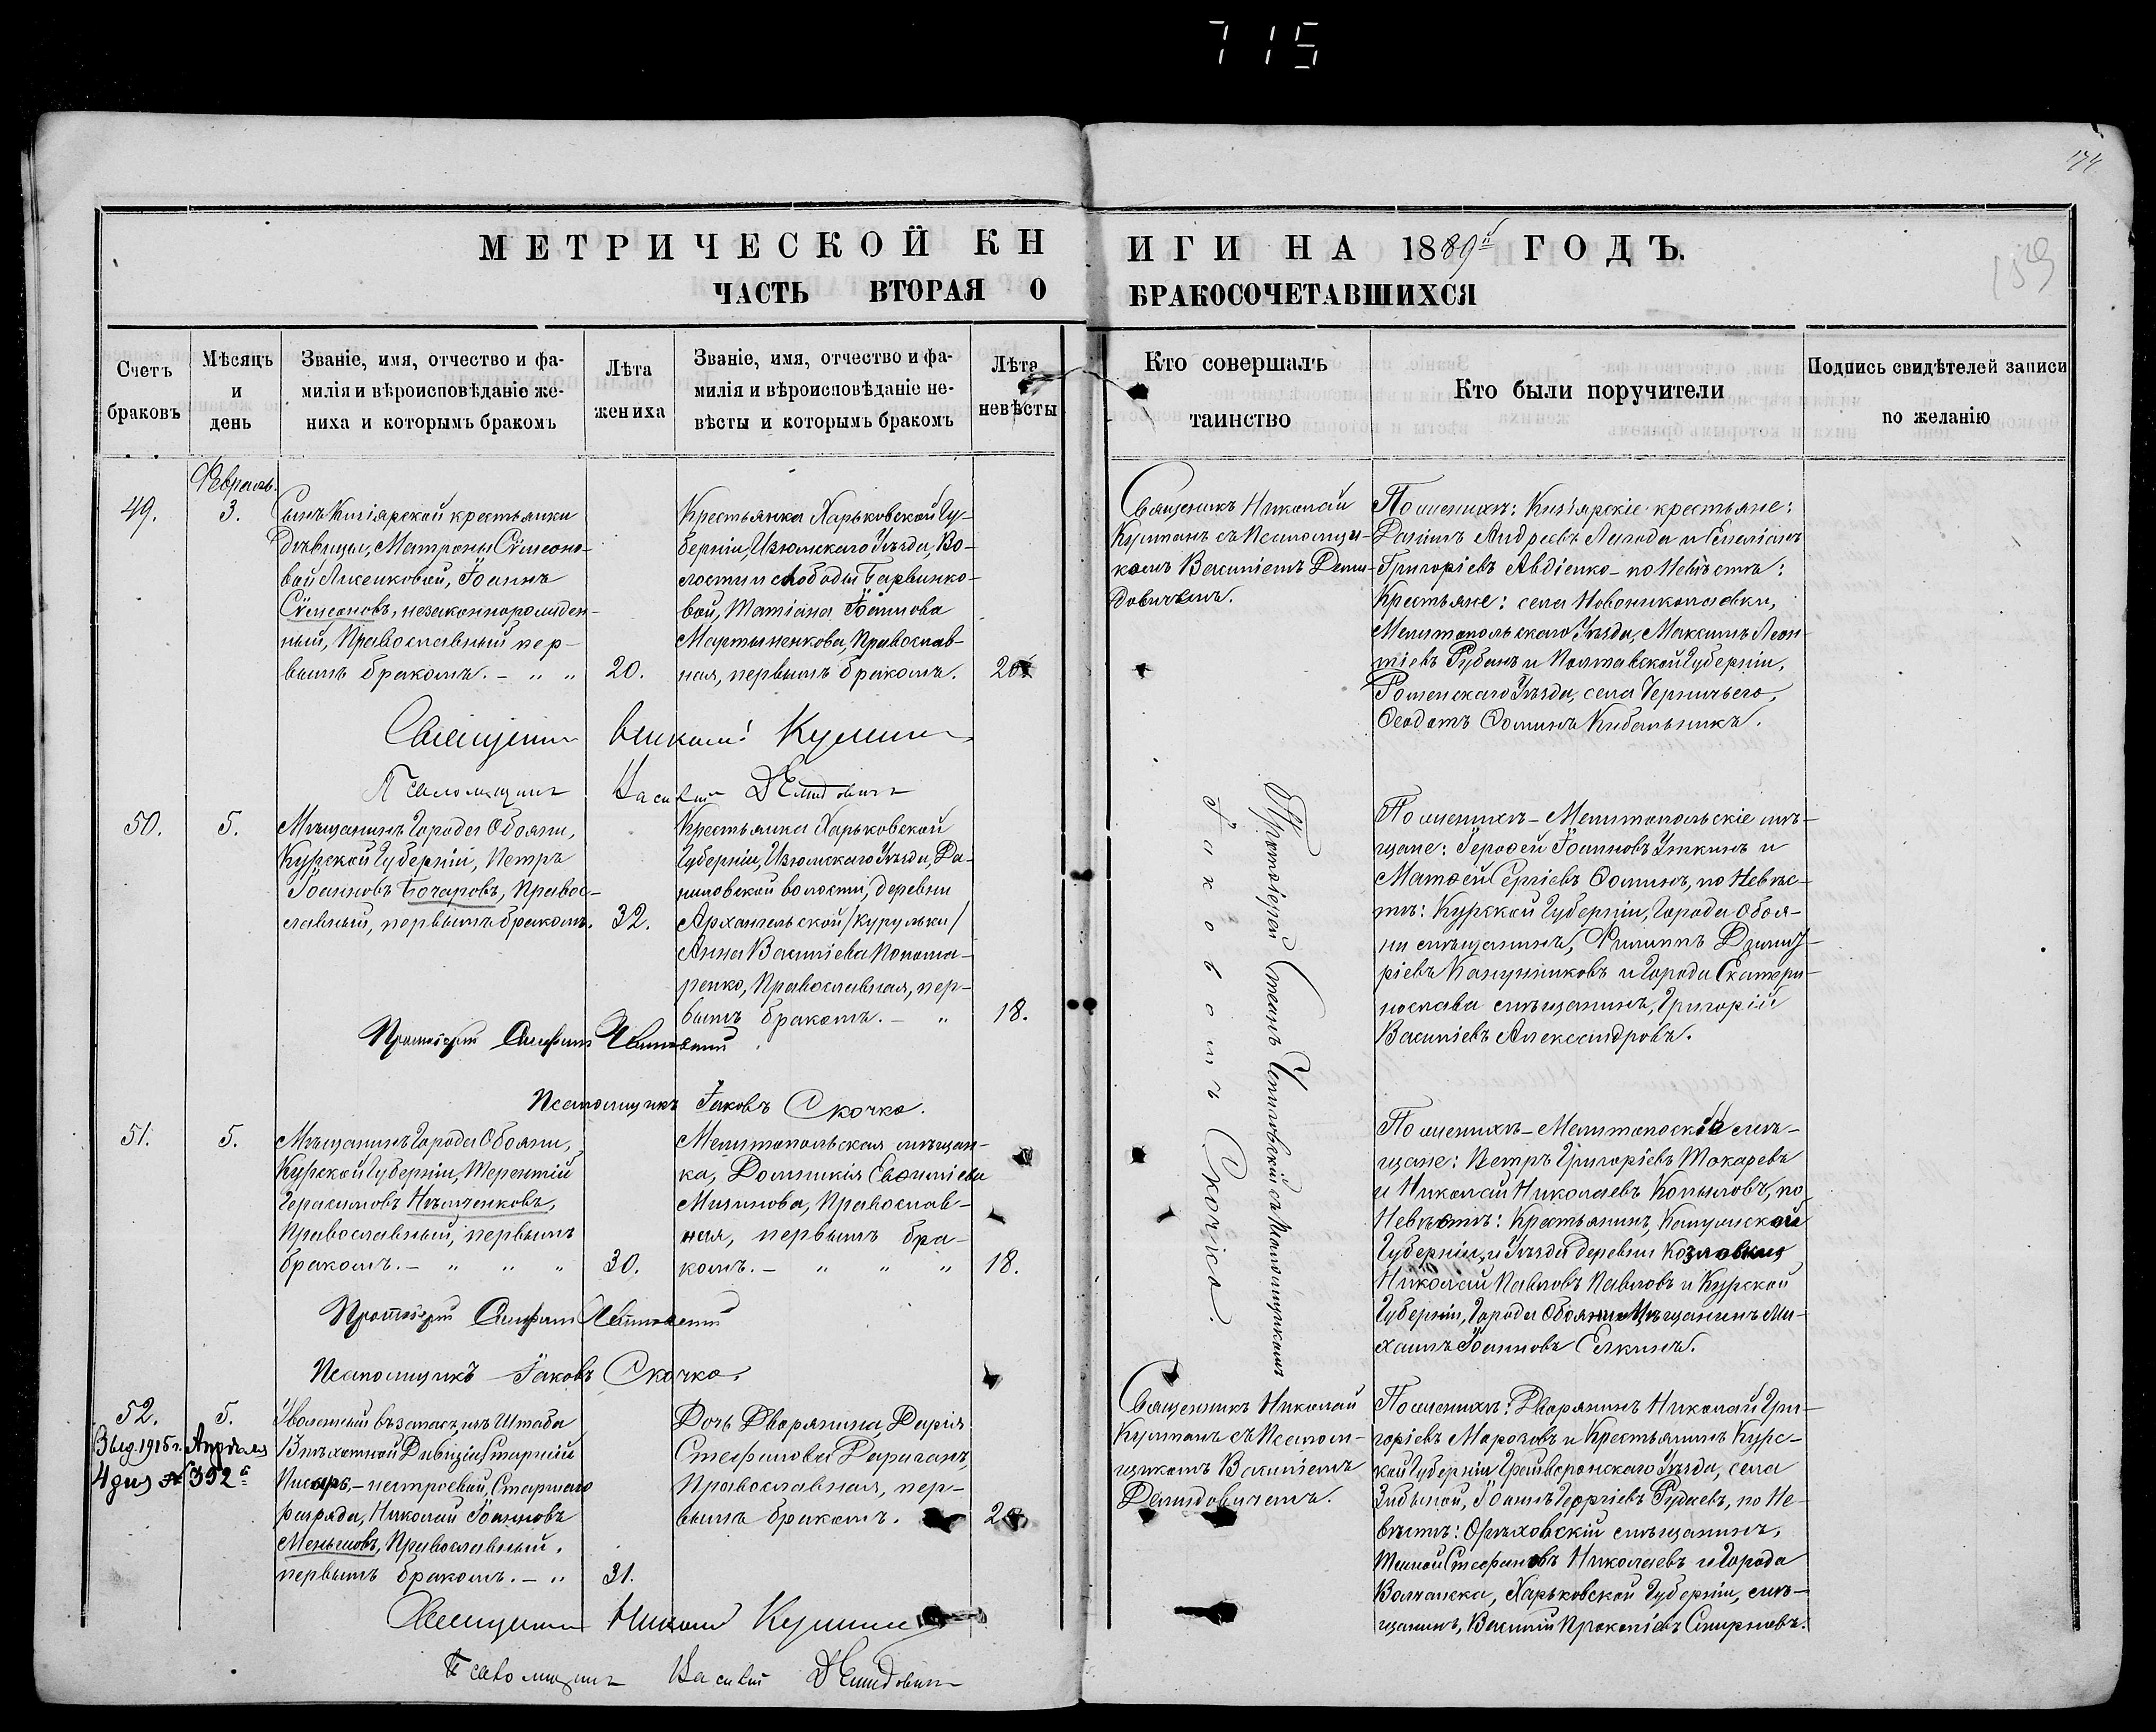 715
174
МЕТРИЧЕСКОЙ КНИГИ НА 1889й ГОДЪ.
159
ЧАСТЬ ВТОРАЯ О БРАКОСОЧЕТАВШИХСЯ
Счетъ
браковъ
Мѣсяцъ
и
день
Званіе, имя, отчество и фа-
милія и вѣроисповѣданіе же-
ниха и которымъ бракомъ
Лѣта
жениха
Званіе, имя, отчество и фа-
милія и вѣроисповѣданіе не-
вѣсты и которымъ бракомъ
Лѣта
невѣсты
Кто совершалъ
таинство
Кто были поручители
Подпись свидѣтелей записи
по желанію
Февраль.
49.
3.
Сынъ Кизіярской крестьянки
дѣвицы, Матроны Сѵмеоно-
вой Лисенковой, Іоаннъ
Сѵмеоновъ, незаконнорожден-
ный, Православный пер-
вымъ бракомъ. – " "
20.
Крестьянка Харьковской Гу-
берніи, Изюмскаго Уѣзда, Во-
лости и слободы Барвинко-
вой, Татіана Іоаннова
Мартыненкова, Православ-
ная, первымъ бракомъ.
20
Священникъ Николай
Кулманъ съ Псаломщи-
комъ Василіемъ Деми-
довичемъ.
По женихѣ: Кизіярскіе крестьяне:
Данілъ Андреевъ Лагода и Емеліанъ
Григоріевъ Авдіенко – по Невѣстѣ:
Крестьяне: села Новониколаевки,
Мелитопольскаго Уѣзда, Максимъ Леон-
тіевъ Рубанъ и Полтавской Губерніи,
Роменскаго Уѣзда, села Чернечьего,
Ѳеодотъ Ѳоминъ Кибальникъ.
Священникъ Николай Кулманъ
Псаломщикъ Василій Демидовичъ
50.
5.
Мѣщанинъ Города Обояни,
Курской Губерніи, Петръ
Іоанновъ Бочаровъ, Правос-
лавный, первымъ бракомъ.
32.
Крестьянка Харьковской
Губерніи, Изюмскаго Уѣзда, Да-
ниловской волости, деревни
Архангельской /Курульки/
Анна Василіева Понома-
ренко, Православная, пер-
вымъ бракомъ. – "
18.
Протоіерей Стефанъ Чепиговскій съ Псаломщикомъ
Іаковомъ Скочко.
По женихѣ – Мелитопольскіе мѣ-
щане: Іероѳей Іоанновъ Уткинъ и
Матѳей Сергіевъ Ѳоминъ, по Невѣс-
тѣ: Курской Губерніи, Города Обоя-
ни мѣщанинъ, Филиппъ Дмит-
ріевъ Канунниковъ и Города Екатери-
нослава мѣщанинъ, Григорій
Василіевъ Александровъ.
Псаломщикъ Іаковъ Скочко.
51.
5.
Мѣщанинъ Города Обояни,
Курской Губерніи, Терентій
Герасимовъ Нѣмченковъ,
Православный, первымъ
бракомъ. – " " "
30.
Мелитопольская мѣщан-
ка, Домникія Евѳиміева
Мишнова, Православ-
ная, первымъ бра-
комъ. – " " "
18.
щане: Петръ Григоріевъ Токаревъ
и Николай Николаевъ Копыловъ, по
Невѣстѣ: Крестьянинъ, Калужской
Губерніи, и Уѣзда деревни Козловки,
Николай Павловъ Павловъ и Курской
Губерніи, Города Обояни Мѣщанинъ Ми-
хаилъ Іоанновъ Елкинъ.
Псаломщикъ Іаковъ Скочко.
52.
5.
Выд. 1915 г. Апрѣля
4 дня № 392
Уволенный въ запасъ, изъ Штаба
Пѣхотной Дивизіи Старшій
Писарь, – нестроевой, Старшаго
разряда, Николай Іоанновъ
Меньшовъ, Православный,
первымъ бракомъ. – "
31.
Дочь Дворянина, Дарія
Стефанова Дараганъ,
Православная, пер-
вымъ бракомъ.
Священникъ Николай
Кулманъ съ Псалом-
щикомъ Василіемъ
Демидовичемъ.
По женихѣ: Дворянинъ Николай Гри-
горіевъ Морозовъ и Крестьянинъ Курс-
кой Губерніи Грайворонскаго Уѣзда, села
Іоаннъ Георгіевъ Рудаевъ, по Не-
вѣстѣ: Орѣховскій мѣщанинъ,
Стефановъ Николаевъ и Города
Волчанска, Харьковской Губерніи, мѣ-
щанинъ, Василій Прокопіевъ Смирновъ.
Священникъ Николай Кулманъ
Псаломщикъ Василій Демидовичъ